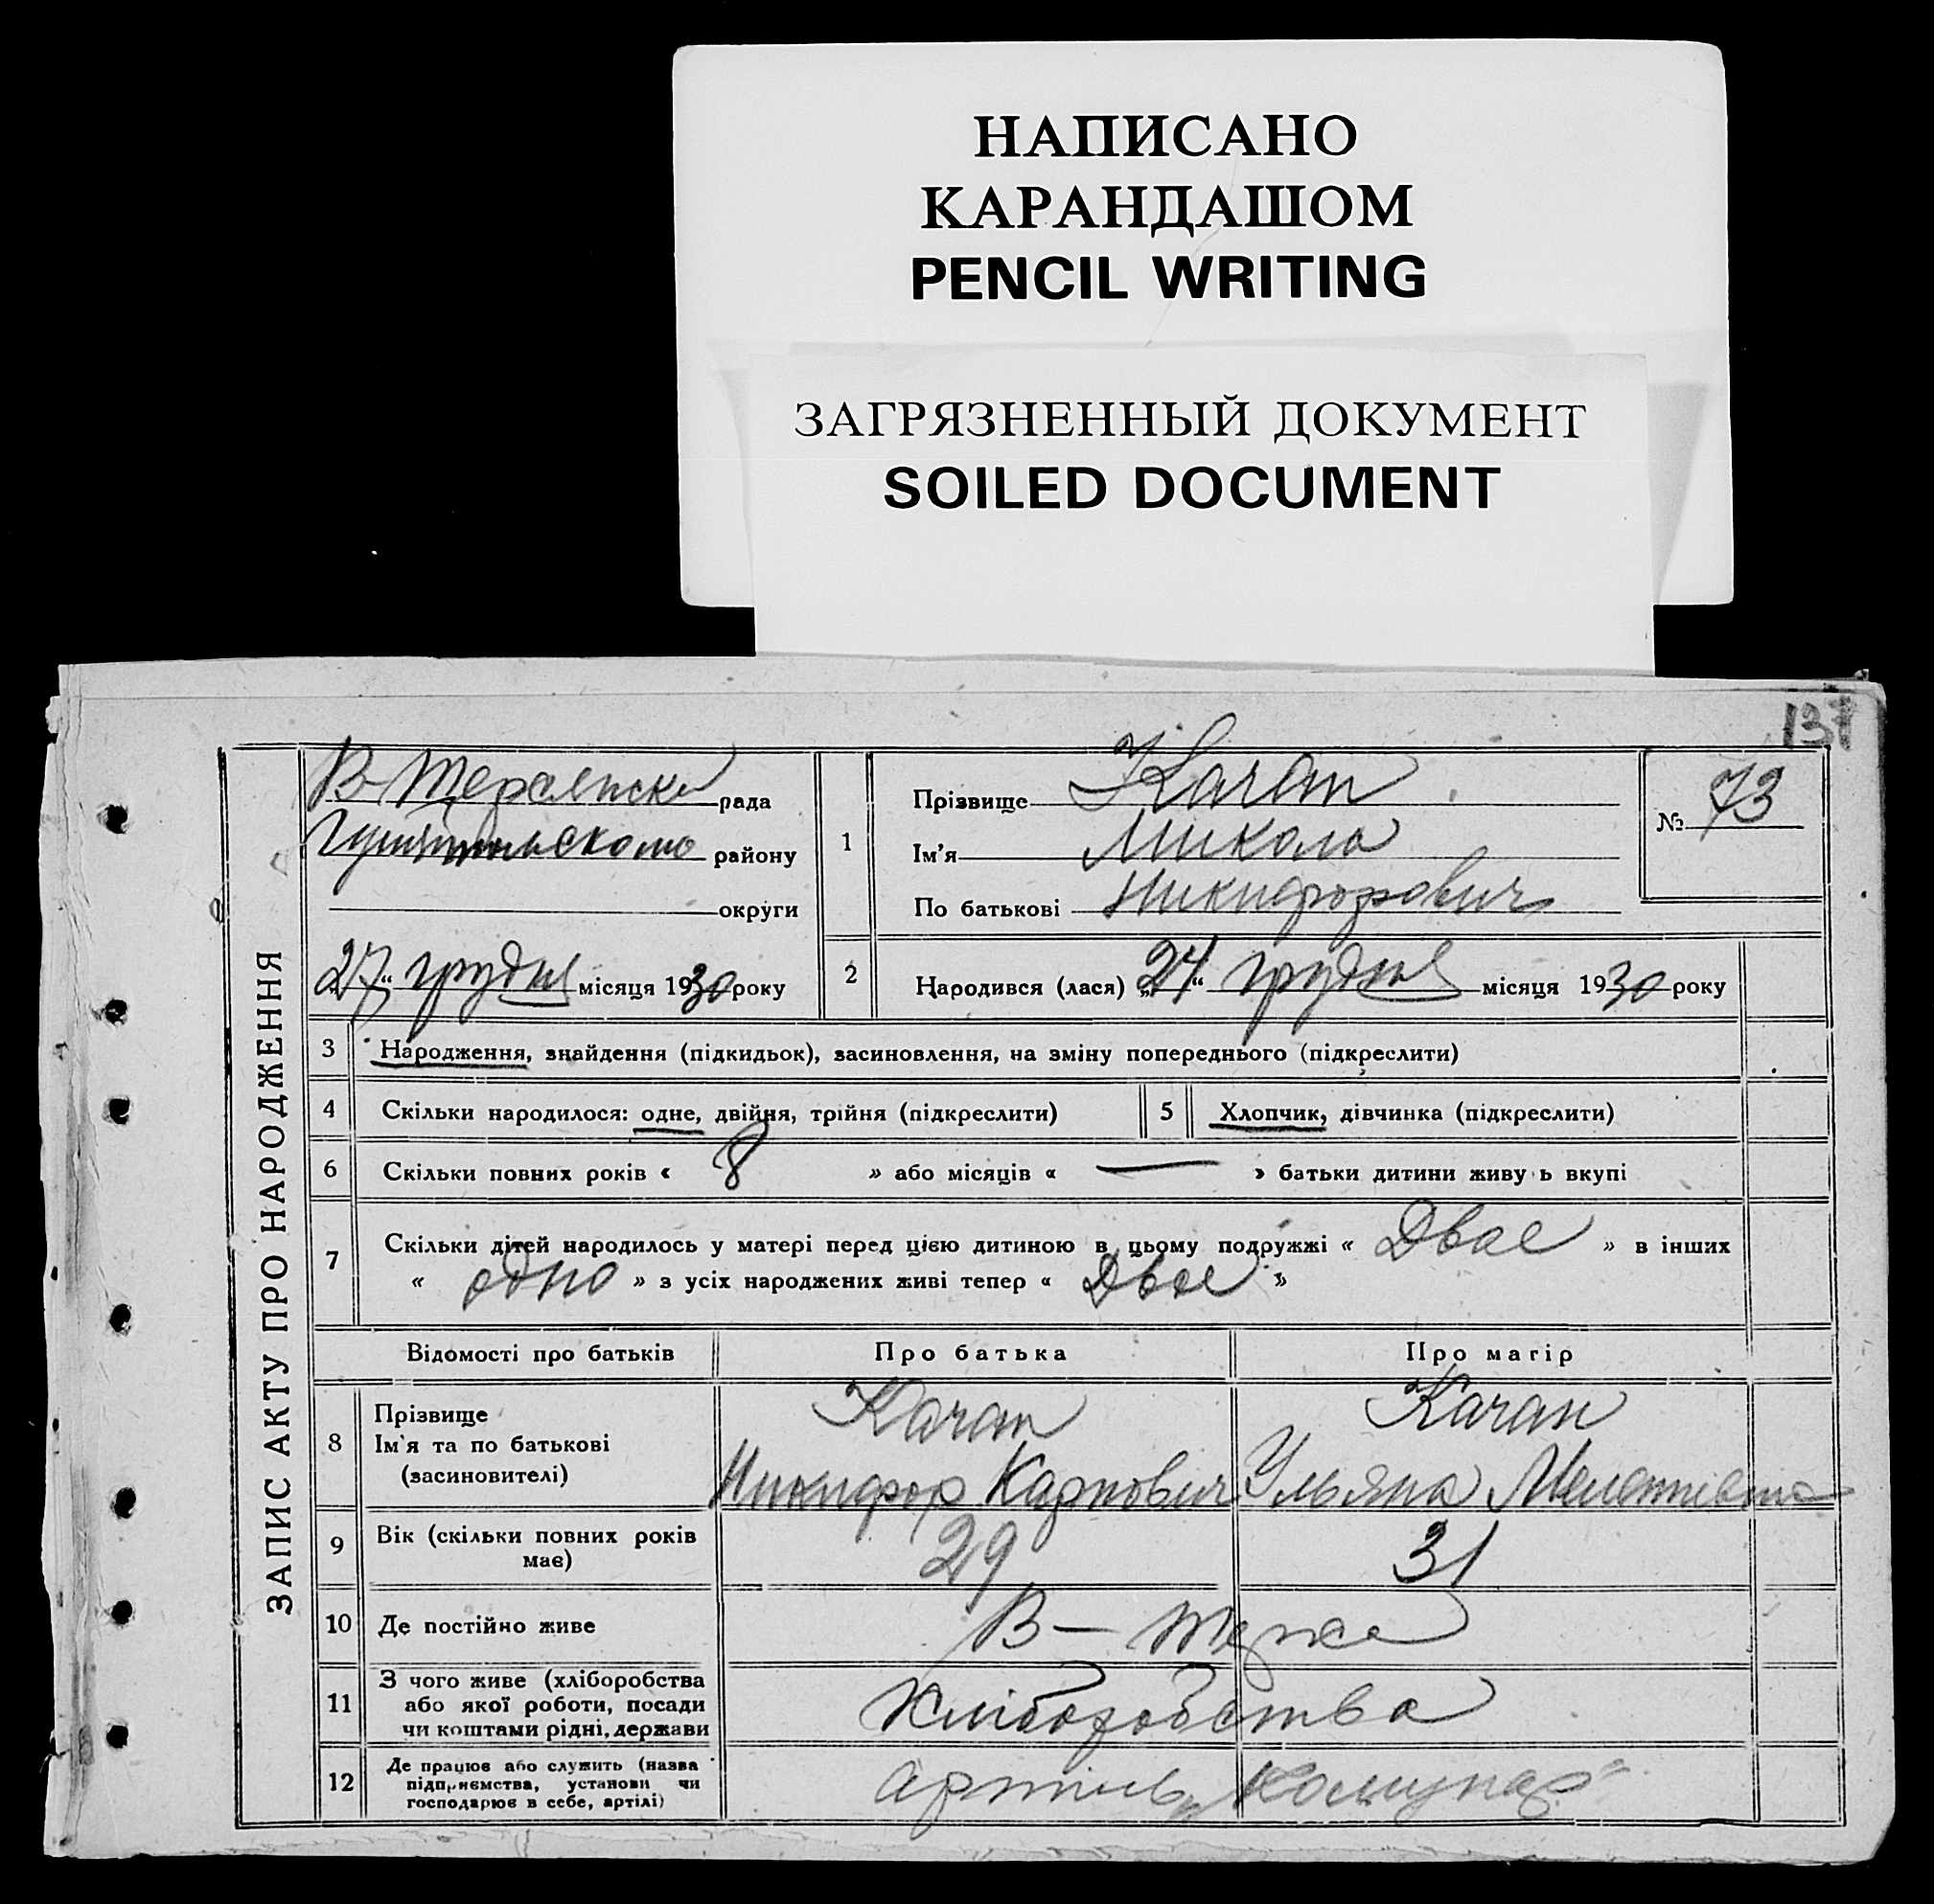 НАПИСАНО
КАРАНДАШОМ
PENCIL WRITING
ЗАГРЯЗНЕННЫЙ ДОКУМЕНТ
SOILED DOCUMENT
137
ЗАПИС АКТУ ПРО НАРОДЖЕННЯ
рада
району
округи
„27“ грудня місяця 1930 року
1
Прізвище Качан
Ім'я Микола
По батькові Никифорович
№ 73
2 Народився (лася) „24“ грудня місяця 1930 року
3 Народження, знайдення (підкидьок), засиновлення, на зміну попереднього (підкреслити)
4 Скільки народилося: одне, двійня, трійня (підкреслити) 5 Хлопчик, дівчинка (підкреслити)
6 Скільки повних років « 8 » або місяців « — » батьки дитини живу ь вкупі
7 Скільки дітей народилось у матері перед цією дитиною в цьому подружжі « Двоє » в інших
« одно » з усіх народжених живі тепер « Двоє »
Відомості про батьків Про батька Про матір
8 Прізвище Качан Качан
Ім'я та по батькові Никифор Карпович Уляна
(засиновителі)
9 Вік (скільки повних років має) 29 31
10 Де постійно живе В-
11 З чого живе (хліборобства або якої роботи, посади чи коштами рідні, держави Хліборобства
12 Де працює або служить (назва підприємства, установи чи господарює в себе, артілі) артіль „Комунар“